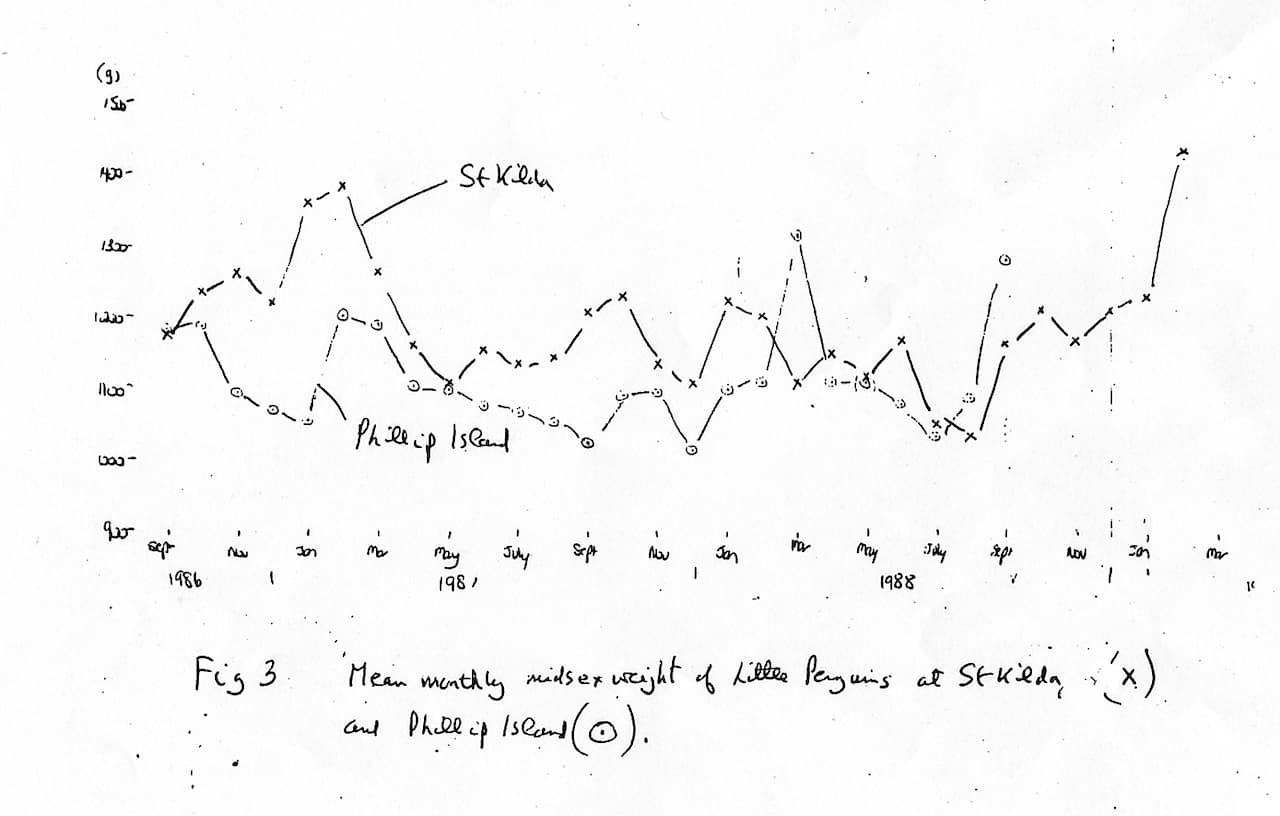 (g)
1500
1400
St Kilda
1300
1200
1100
Phillip Island
1000
900
Sept Nov Jan Mar May July Sept Nov Jan Mar May July Sept Nov Jan Mar
1986 1987 1988
Fig 3 Mean monthly midsex weight of Little Penguins at St Kilda (x)
and Phillip Island (⊙).